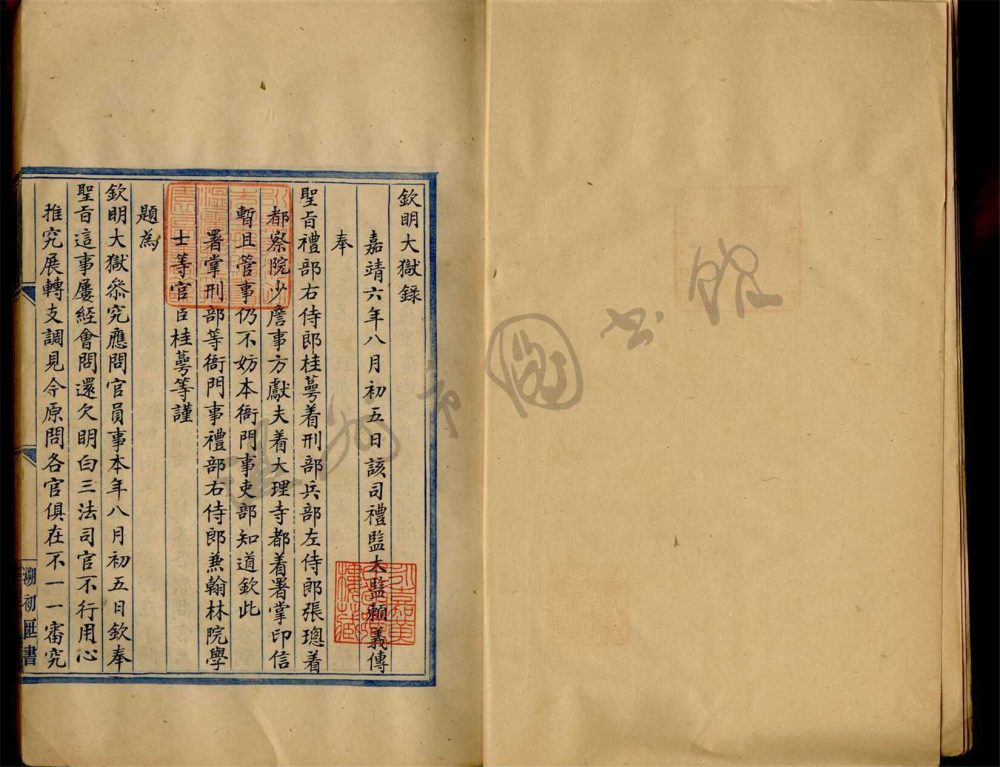 欽明大獄錄
嘉靖六年八月初五日該司禮監太監賴義傳
奉
聖旨禮部右侍郎桂萼着刑部兵部左侍郎張璁着
都察院少詹事方獻夫着大理寺都着署掌印信
暫且管事仍不妨本衙門事吏部知道欽此
署掌刑部等衙門事禮部右侍郎兼翰林院學
士等官臣桂萼等謹
題為
欽明大獄叅究應問官員事本年八月初五日欽奉
聖旨這事屢經會問還欠明白三法司官不行用心
推究展轉支調見今原問各官俱在不一一審究
溯初匧書
溫州市圖书館